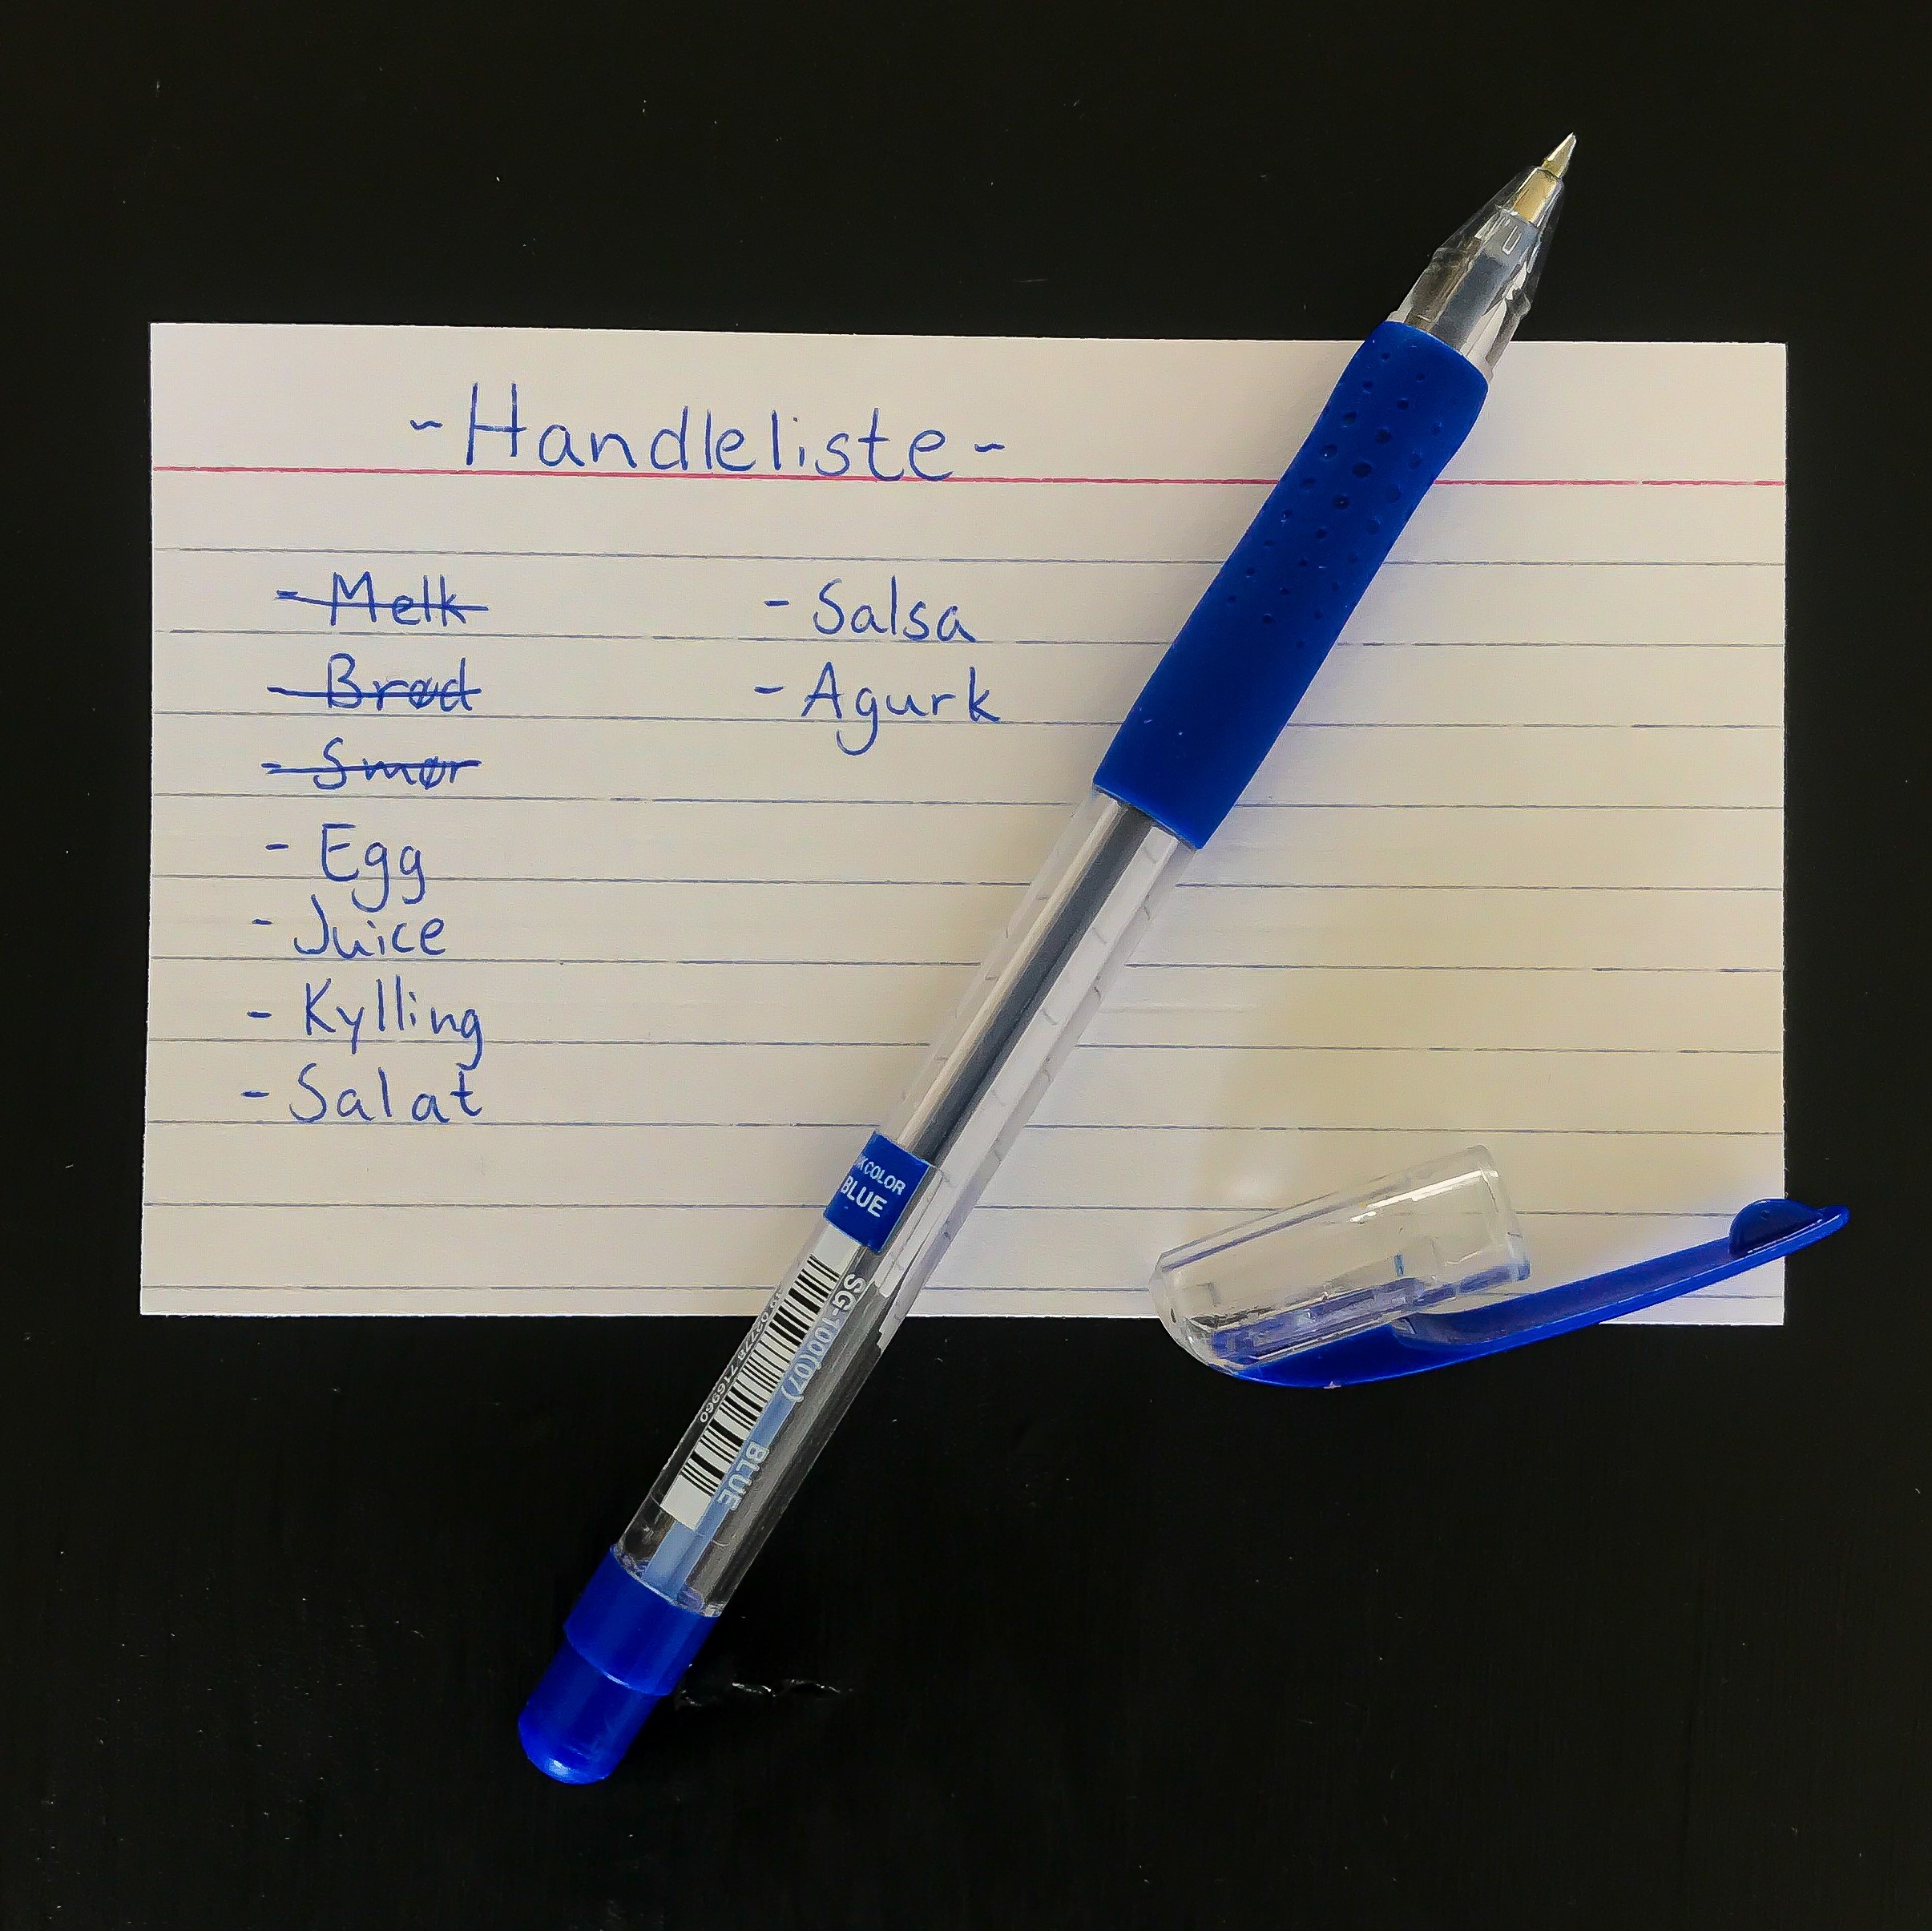 ~Handleliste~
- Melk
- Brød
- Smør
- Egg
- Juice
- Kylling
- Salat
- Salsa
- Agurk
COLOR
BLUE
SG-100(07) BLUE